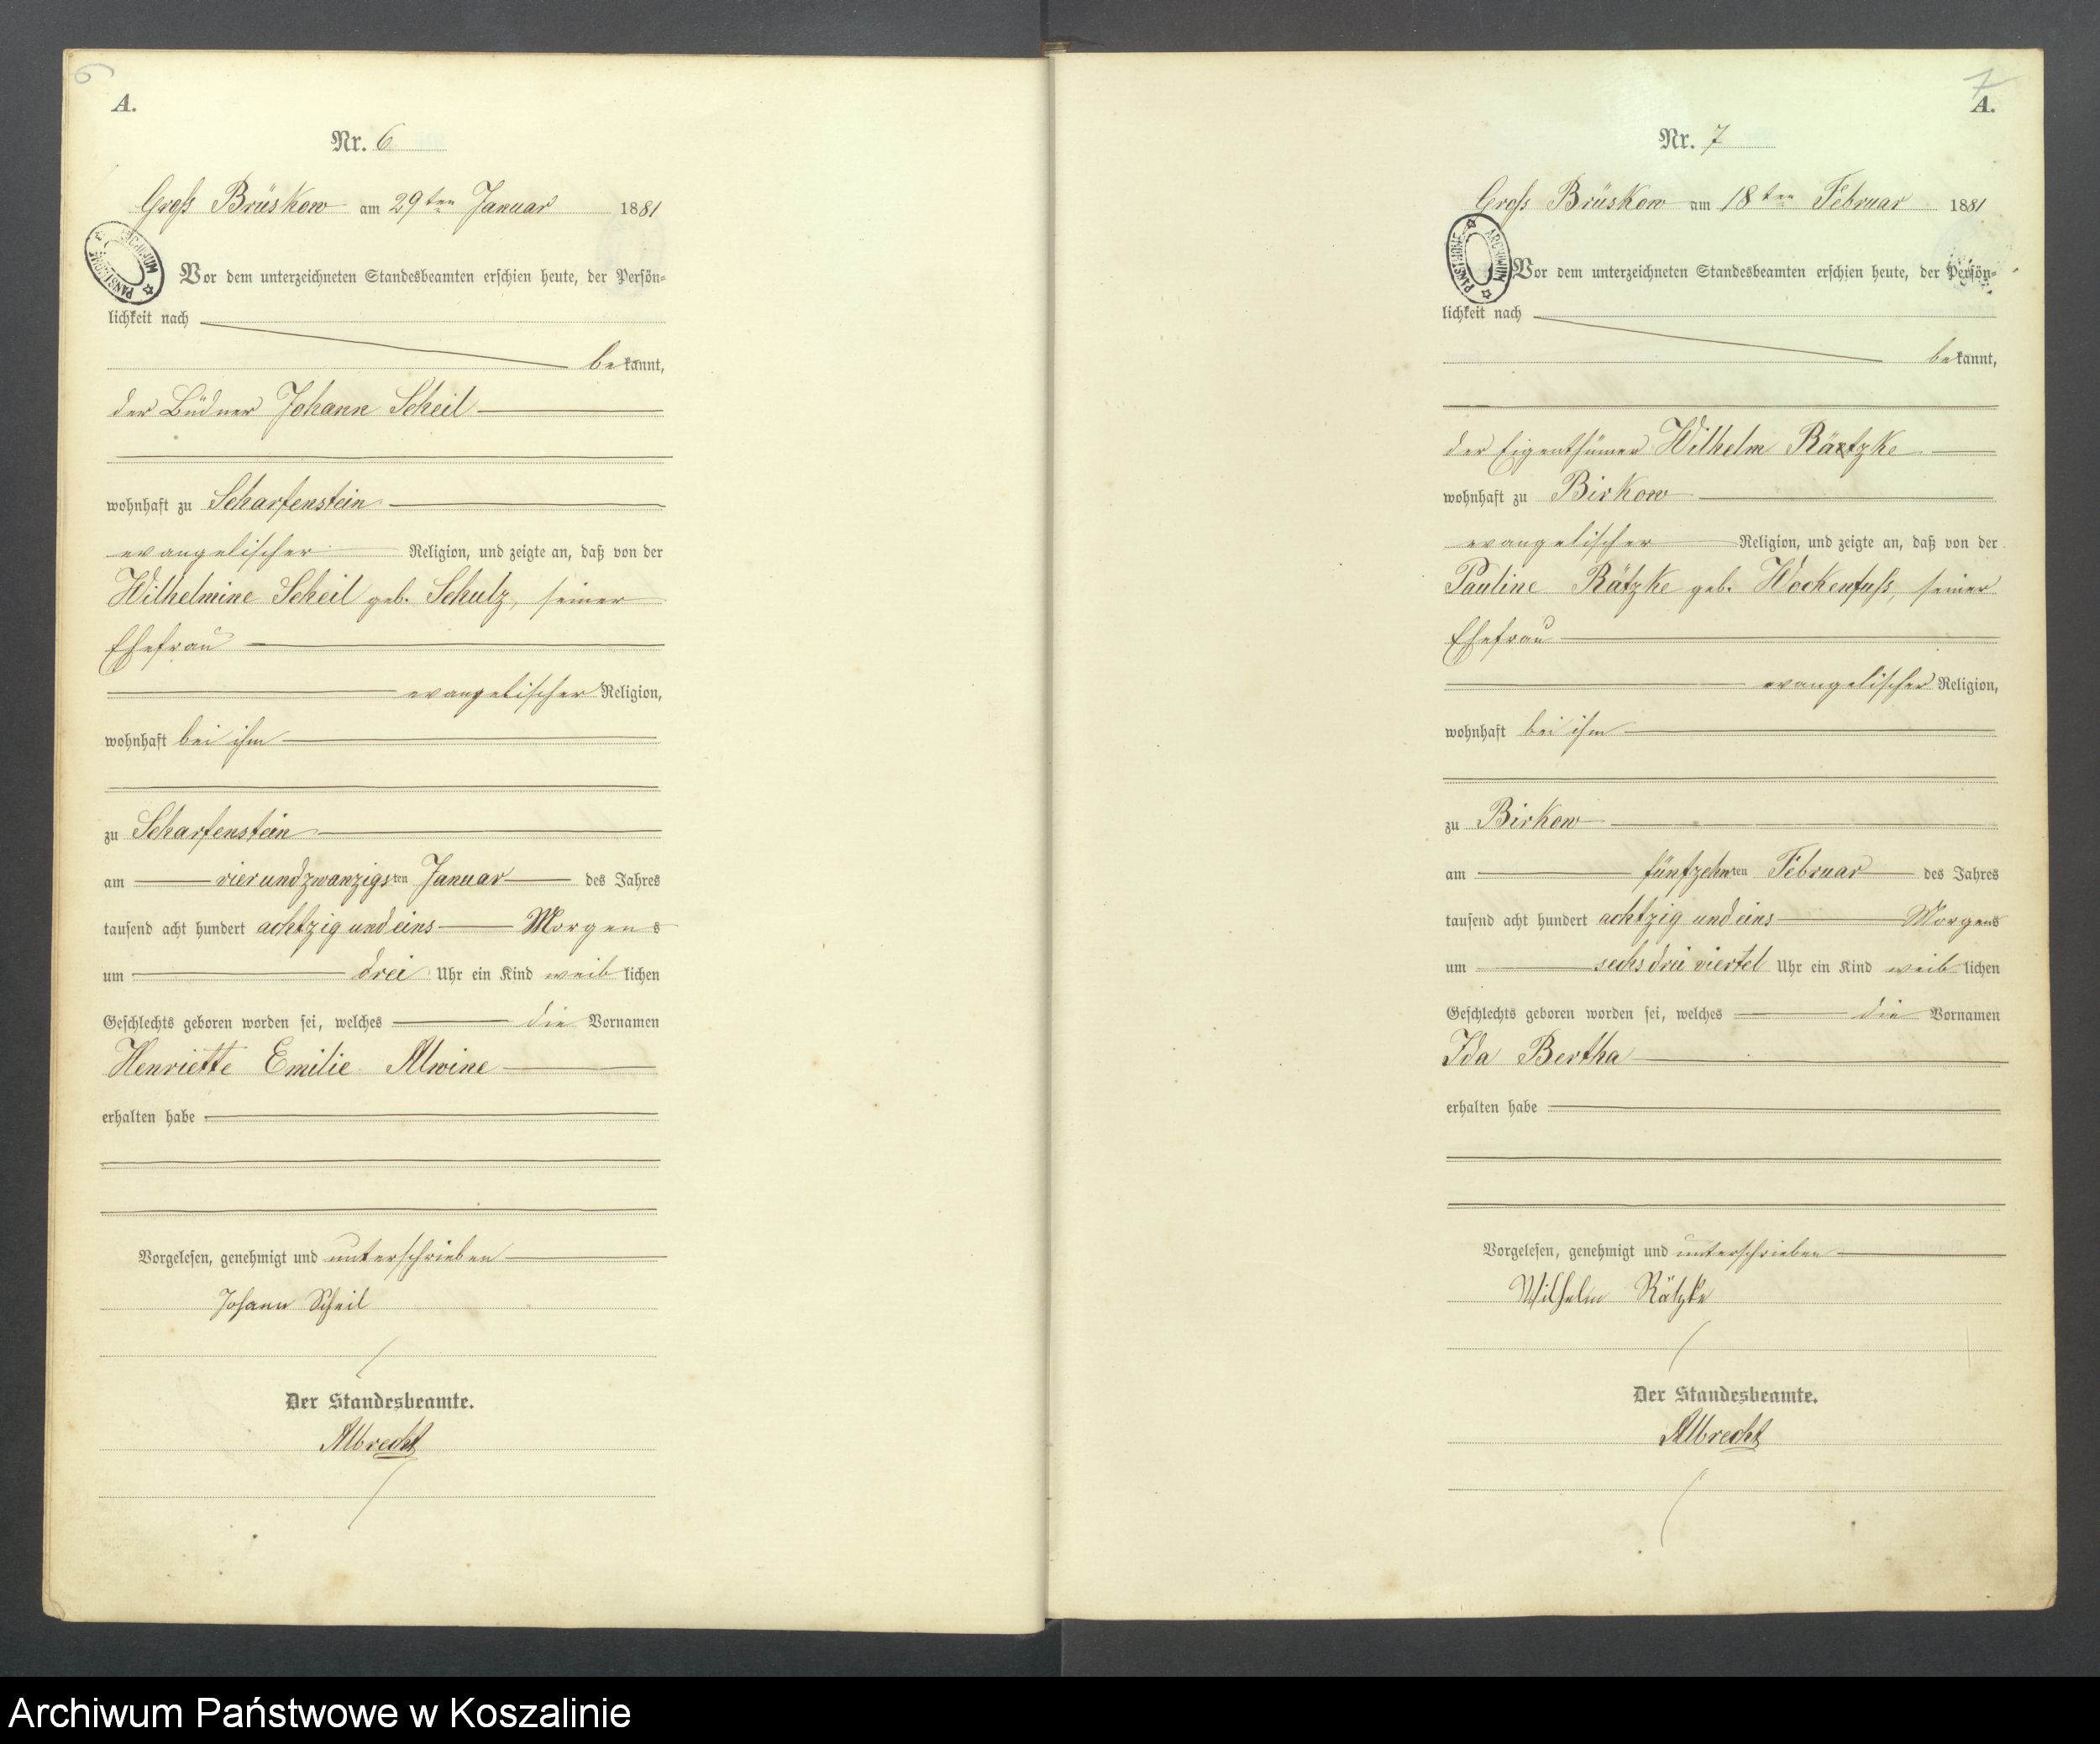 6
A.
Nr. 6
Groß Brüskow am 29ten Januar 1881
ARCHIWUM PAŃSTWOWE
Vor dem unterzeichneten Standesbeamten erschien heute, der Persön-
lichkeit nach
bekannt,
der Büdner Johann Scheil
wohnhaft zu Scharfenstein
evangelischer Religion, und zeigte an, daß von der
Wilhelmine Scheil geb. Schulz, seiner
Ehefrau
evangelischer Religion,
wohnhaft bei ihm
zu Scharfenstein
am vierundzwanzigsten Januar des Jahres
tausend acht hundert achtzig und eins Morgens
um drei Uhr ein Kind weiblichen
Geschlechts geboren worden sei, welches die Vornamen
Henriette Emilie Alwine
erhalten habe
Vorgelesen, genehmigt und unterschrieben
Johann Scheil
Der Standesbeamte.
Albrecht
7
A.
Nr. 7
Groß Brüskow am 18ten Februar 1881
ARCHIWUM PAŃSTWOWE
Vor dem unterzeichneten Standesbeamten erschien heute, der Persön-
lichkeit nach
bekannt,
der Eigenthümer Wilhelm Rätzke
wohnhaft zu Birkow
evangelischer Religion, und zeigte an, daß von der
Pauline Rätzke geb. Wockenfuß, seiner
Ehefrau
evangelischer Religion,
wohnhaft bei ihm
zu Birkow
am fünfzehnten Februar des Jahres
tausend acht hundert achtzig und eins Morgens
um sechs drei viertel Uhr ein Kind weiblichen
Geschlechts geboren worden sei, welches die Vornamen
Ida Bertha
erhalten habe
Vorgelesen, genehmigt und unterschrieben
Wilhelm Rätzke
Der Standesbeamte.
Albrecht
Archiwum Państwowe w Koszalinie